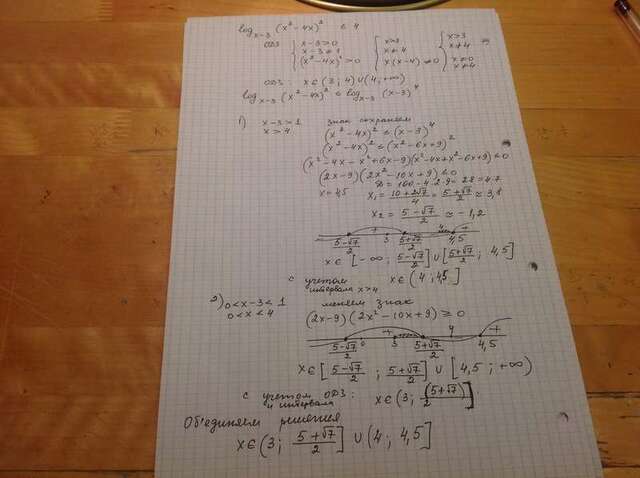 log x-3 (x² - 4x)² ≤ 4
ОДЗ { x-3>0 { x>3 { x>3
x-3≠1 x≠4 x≠4
(x²-4x)²>0 x(x-4)≠0 x≠0
x≠4
ОДЗ: x∈(3; 4)∪(4;+∞)
log x-3 (x²-4x)² ≤ log x-3 (x-3)⁴
1) x-3>1 знак сохраняем
x>4 (x²-4x)² ≤ (x-3)⁴
(x²-4x)² ≤ (x²-6x+9)²
(x²-4x-x²+6x-9)(x²-4x+x²-6x+9)≤0
(2x-9)(2x²-10x+9)≤0
D=100-4·2·9=28=4·7
x=4,5 x₁ = (10+2√7)/4 = (5+√7)/2 ≈ 3,8
x₂ = (5-√7)/2 ≈ -1,2
- + - 4 +
(5-√7)/2 3 (5+√7)/2 4,5
x∈[-∞; (5-√7)/2]∪[(5+√7)/2; 4,5]
с учетом интервала x>4 x∈(4; 4,5]
2) 0<x-3<1 меняем знак
0<x<4 (2x-9)(2x²-10x+9)≥0
- + - 4 +
(5-√7)/2 0 3 (5+√7)/2 4,5
x∈[(5-√7)/2; (5+√7)/2]∪[4,5; +∞)
с учетом ОДЗ и интервала: x∈(3; (5+√7)/2]
Об'единяем решения
x∈(3; (5+√7)/2]∪(4; 4,5]